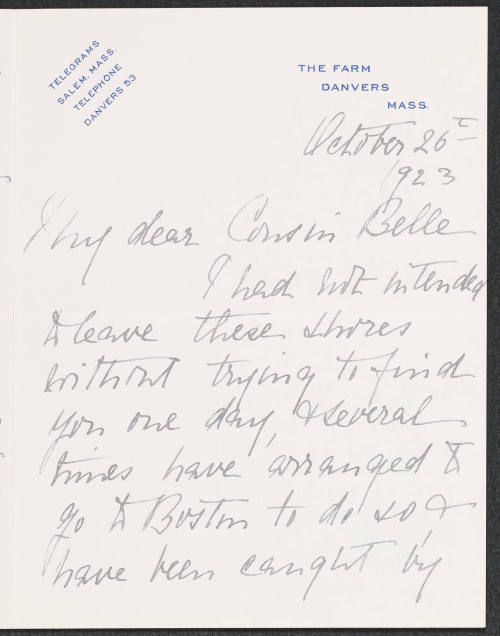 TELEGRAMS
SALEM, MASS.
TELEPHONE
DANVERS 53
THE FARM
DANVERS
MASS.
October 26th
1923
My dear Cousin Belle
I had not intended
to leave these shores
without trying to find
you one day, & several
times have arranged to
go to Boston to do so &
have been caught by